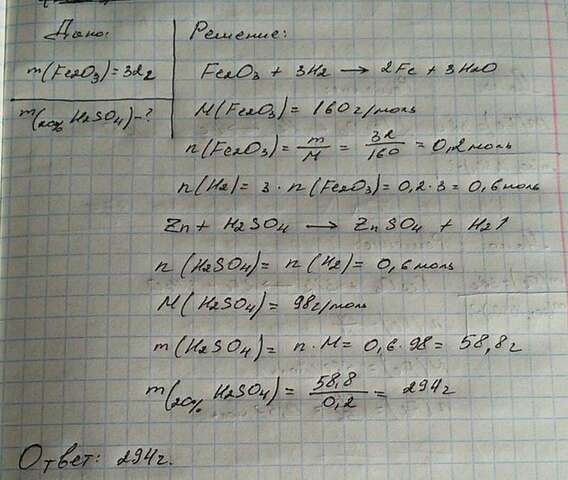 Дано:
m(Fe2O3)=32г
m(20% H2SO4)-?
Решение:
Fe2O3 + 3H2 → 2Fe + 3H2O
M(Fe2O3)= 160г/моль
n(Fe2O3)= m/M = 32/160 = 0,2моль
n(H2)= 3·n(Fe2O3)= 0,2·3= 0,6моль
Zn + H2SO4 → ZnSO4 + H2↑
n(H2SO4)= n(H2)= 0,6моль
M(H2SO4)= 98г/моль
m(H2SO4)= n·M= 0,6·98= 58,8г
m(20% H2SO4)= 58,8/0,2 = 294г
Ответ: 294г.